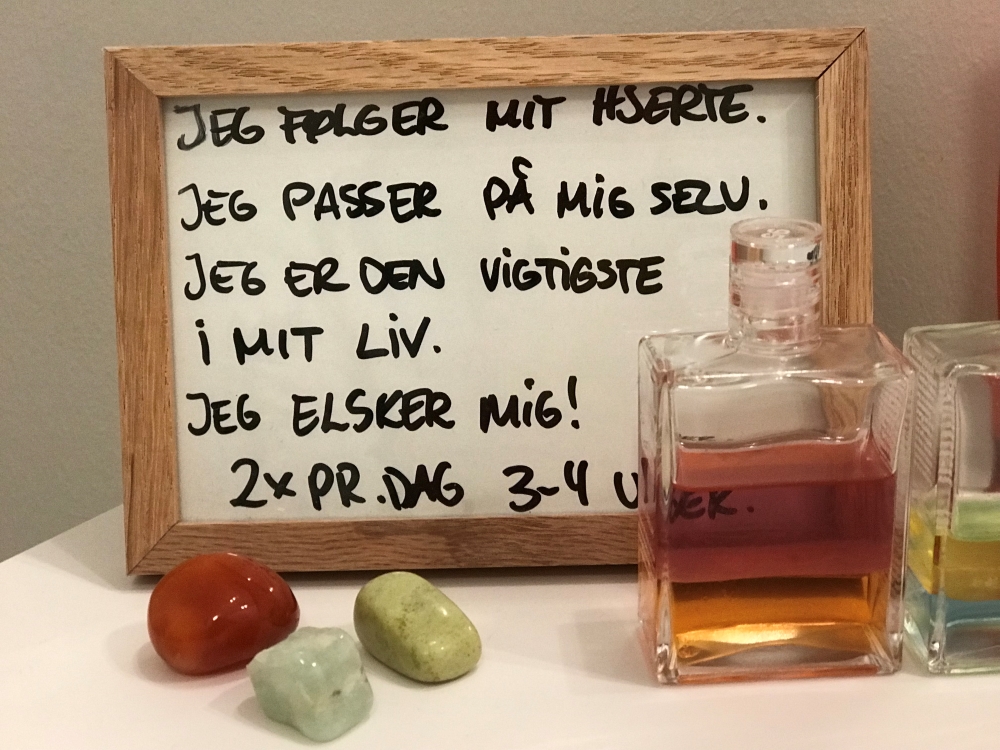 JEG FØLGER MIT HJERTE.
JEG PASSER PÅ MIG SELV.
JEG ER DEN VIGTIGSTE
i MIT LIV.
JEG ELSKER MIG!
2x PR. DAG 3-4 UGER.